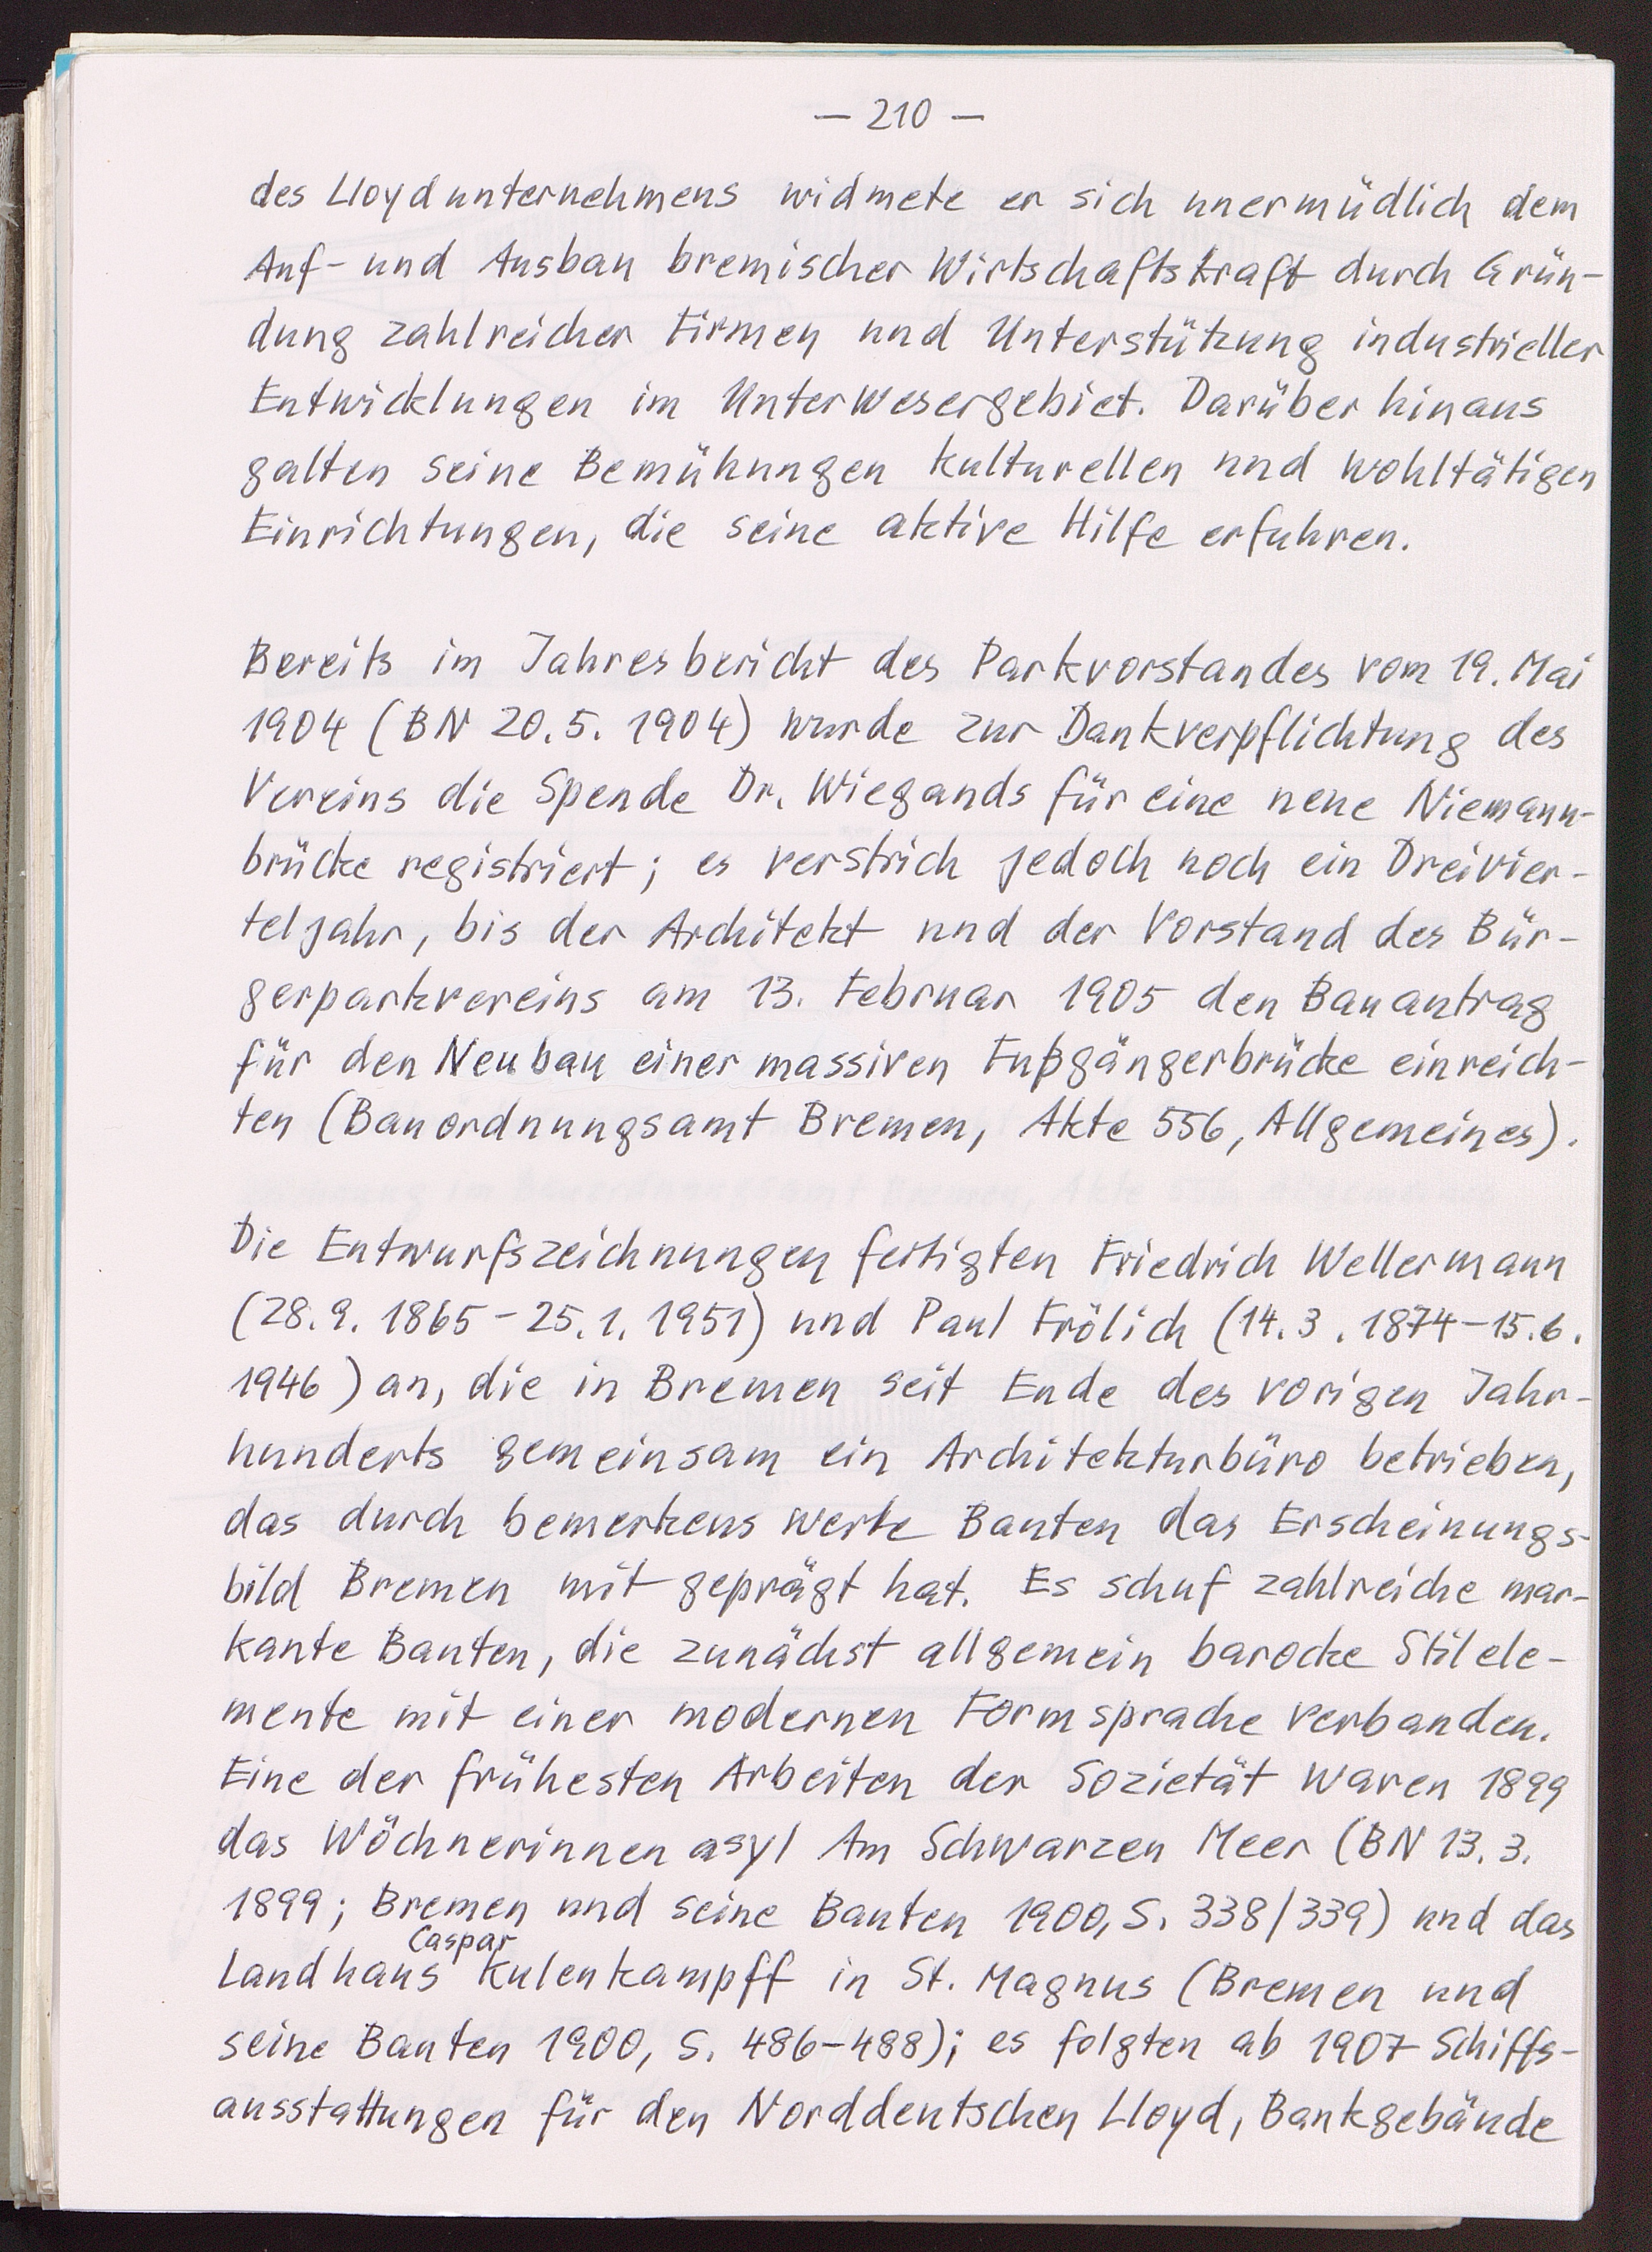 — 210 —
des Lloydunternehmens widmete er sich unermüdlich dem
Auf- und Ausbau bremischer Wirtschaftskraft durch Grün-
dung zahlreicher Firmen und Unterstützung industrieller
Entwicklungen im Unterwesergebiet. Darüber hinaus
galten seine Bemühungen kulturellen und wohltätigen
Einrichtungen, die seine aktive Hilfe erfuhren.
Bereits im Jahresbericht des Parkvorstandes vom 19. Mai
1904 (BN 20.5. 1904) wurde zur Dankverpflichtung des
Vereins die Spende Dr. Wiegands für eine neue Niemann-
brücke registriert; es verstrich jedoch noch ein Dreivier-
teljahr, bis der Architekt und der Vorstand des Bür-
gerparkvereins am 13. Februar 1905 den Bauantrag
für den Neubau einer massiven Fußgängerbrücke einreich-
ten (Bauordnungsamt Bremen, Akte 556, Allgemeines).
Die Entwurfszeichnungen fertigten Friedrich Wellermann
(28.9. 1865 - 25.1. 1951) und Paul Frölich (14.3. 1874-15.6.
1946) an, die in Bremen seit Ende des vorigen Jahr-
hunderts gemeinsam ein Architekturbüro betrieben,
das durch bemerkenswerte Bauten das Erscheinungs-
bild Bremen mit geprägt hat. Es schuf zahlreiche mar-
kante Bauten, die zunächst allgemein barocke Stilele-
mente mit einer modernen Formsprache verbanden.
Eine der frühesten Arbeiten der Sozietät waren 1899
das Wöchnerinnenasyl Am Schwarzen Meer (BN 13.3.
1899; Bremen und seine Bauten 1900, S. 338/339) und das
Caspar
Landhaus Kulenkampff in St. Magnus (Bremen und
seine Bauten 1900, S. 486-488); es folgten ab 1907 Schiffs-
ausstattungen für den Norddeutschen Lloyd, Bankgebäude